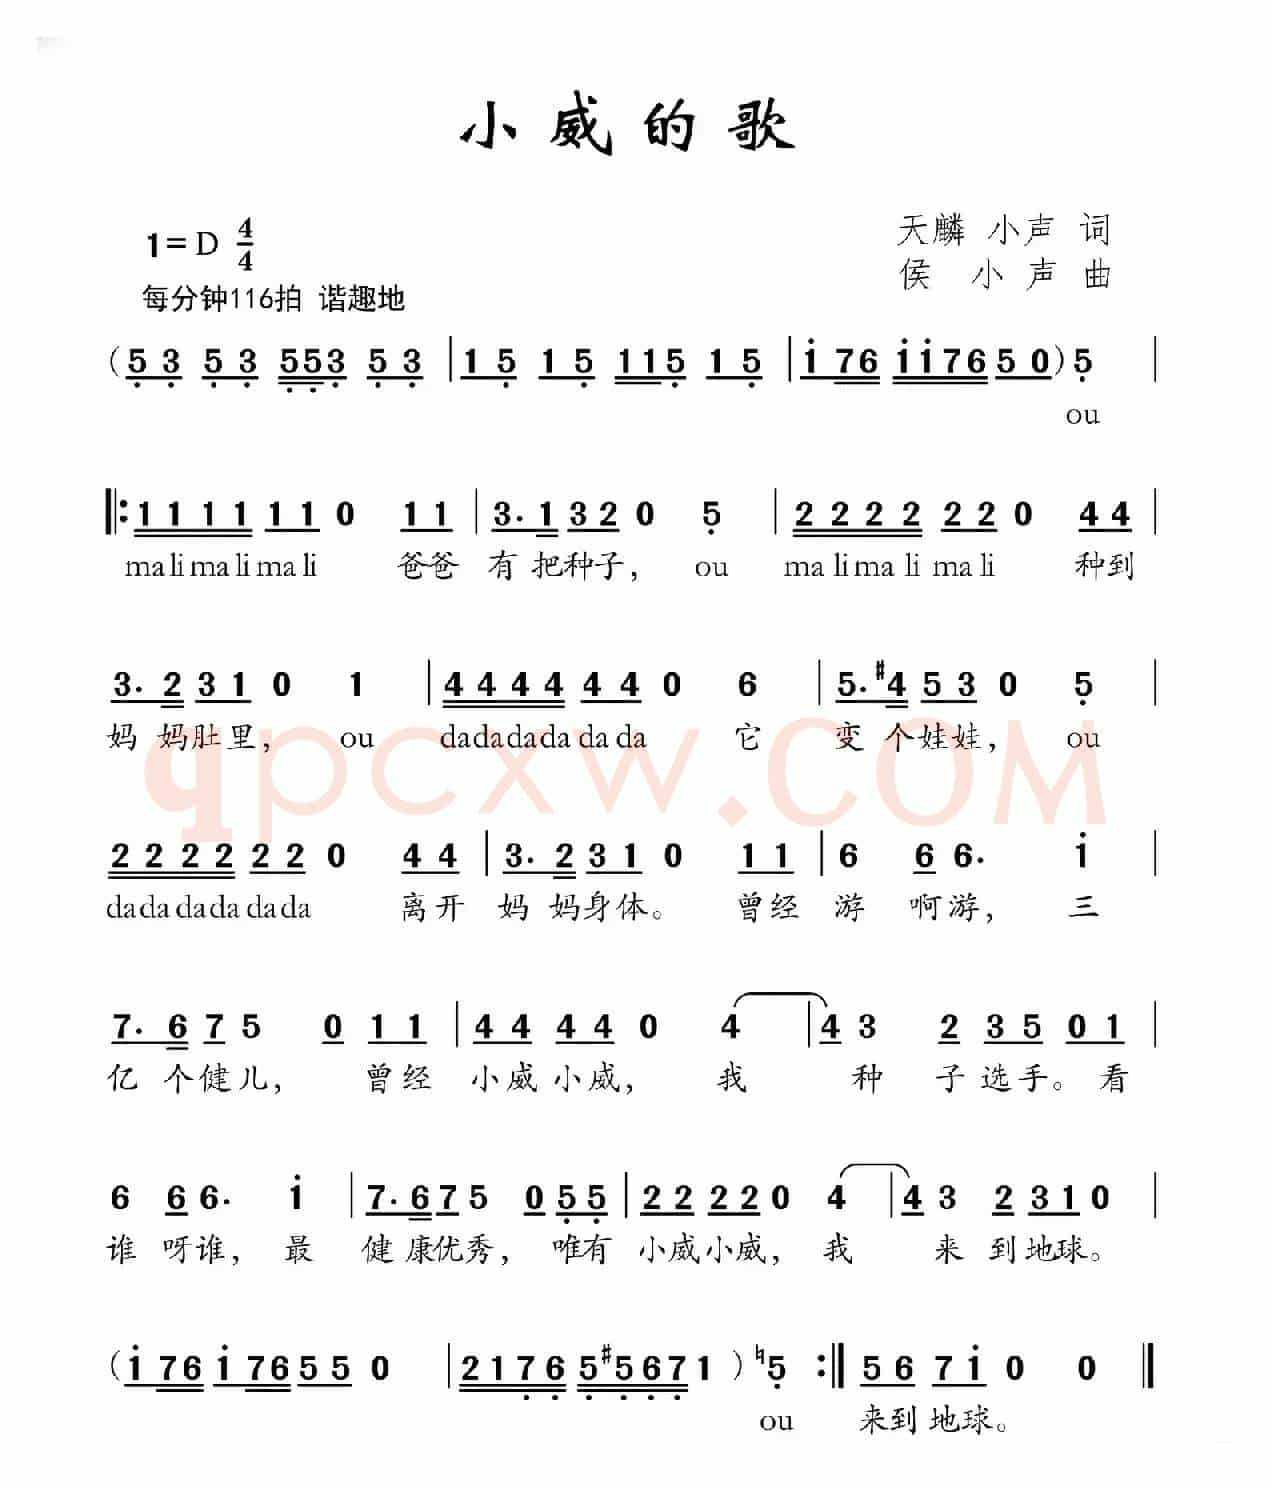 小威的歌
1=D 4/4
天麟 小声 词
侯 小声 曲
每分钟116拍 谐趣地
(5̣ 3̣ 5̣ 3̣ 5̣5̣3̣ 5̣ 3̣ | 1 5̣ 1 5̣ 1 1 5̣ 1 5̣ | i 7 6 i i 7 6 5 0) 5̣ |
ou
‖: 1 1 1 1 1 1 0 1 1 | 3. 1 3 2 0 5̣ | 2 2 2 2 2 2 0 4 4 |
ma li ma li ma li 爸爸 有 把种子, ou ma li ma li ma li 种到
3. 2 3 1 0 1 | 4 4 4 4 4 4 0 6 | 5. #4 5 3 0 5̣ |
妈 妈肚里, ou dadadadadada 它 变 个娃娃, ou
qpcxw.COM
2 2 2 2 2 2 0 4 4 | 3. 2 3 1 0 1 1 | 6 6 6. i |
dadadadadada 离开 妈 妈身体。 曾经 游 啊游, 三
7. 6 7 5 0 1 1 | 4 4 4 4 0 4 | 4 3 2 3 5 0 1 |
亿 个健儿, 曾经 小威小威, 我 种 子选手。看
6 6 6. i | 7. 6 7 5 0 5̣ 5̣ | 2 2 2 2 0 4 | 4 3 2 3 1 0 |
谁 呀谁, 最 健 康优秀, 唯有 小威小威, 我 来 到地球。
(i 7 6 i 7 6 5 5 0 | 2 1 7̣ 6̣ 5̣ #5̣ 6̣ 7̣ 1) ♮5̣ :‖ 5 6 7 i 0 0 ‖
ou 来到地球。